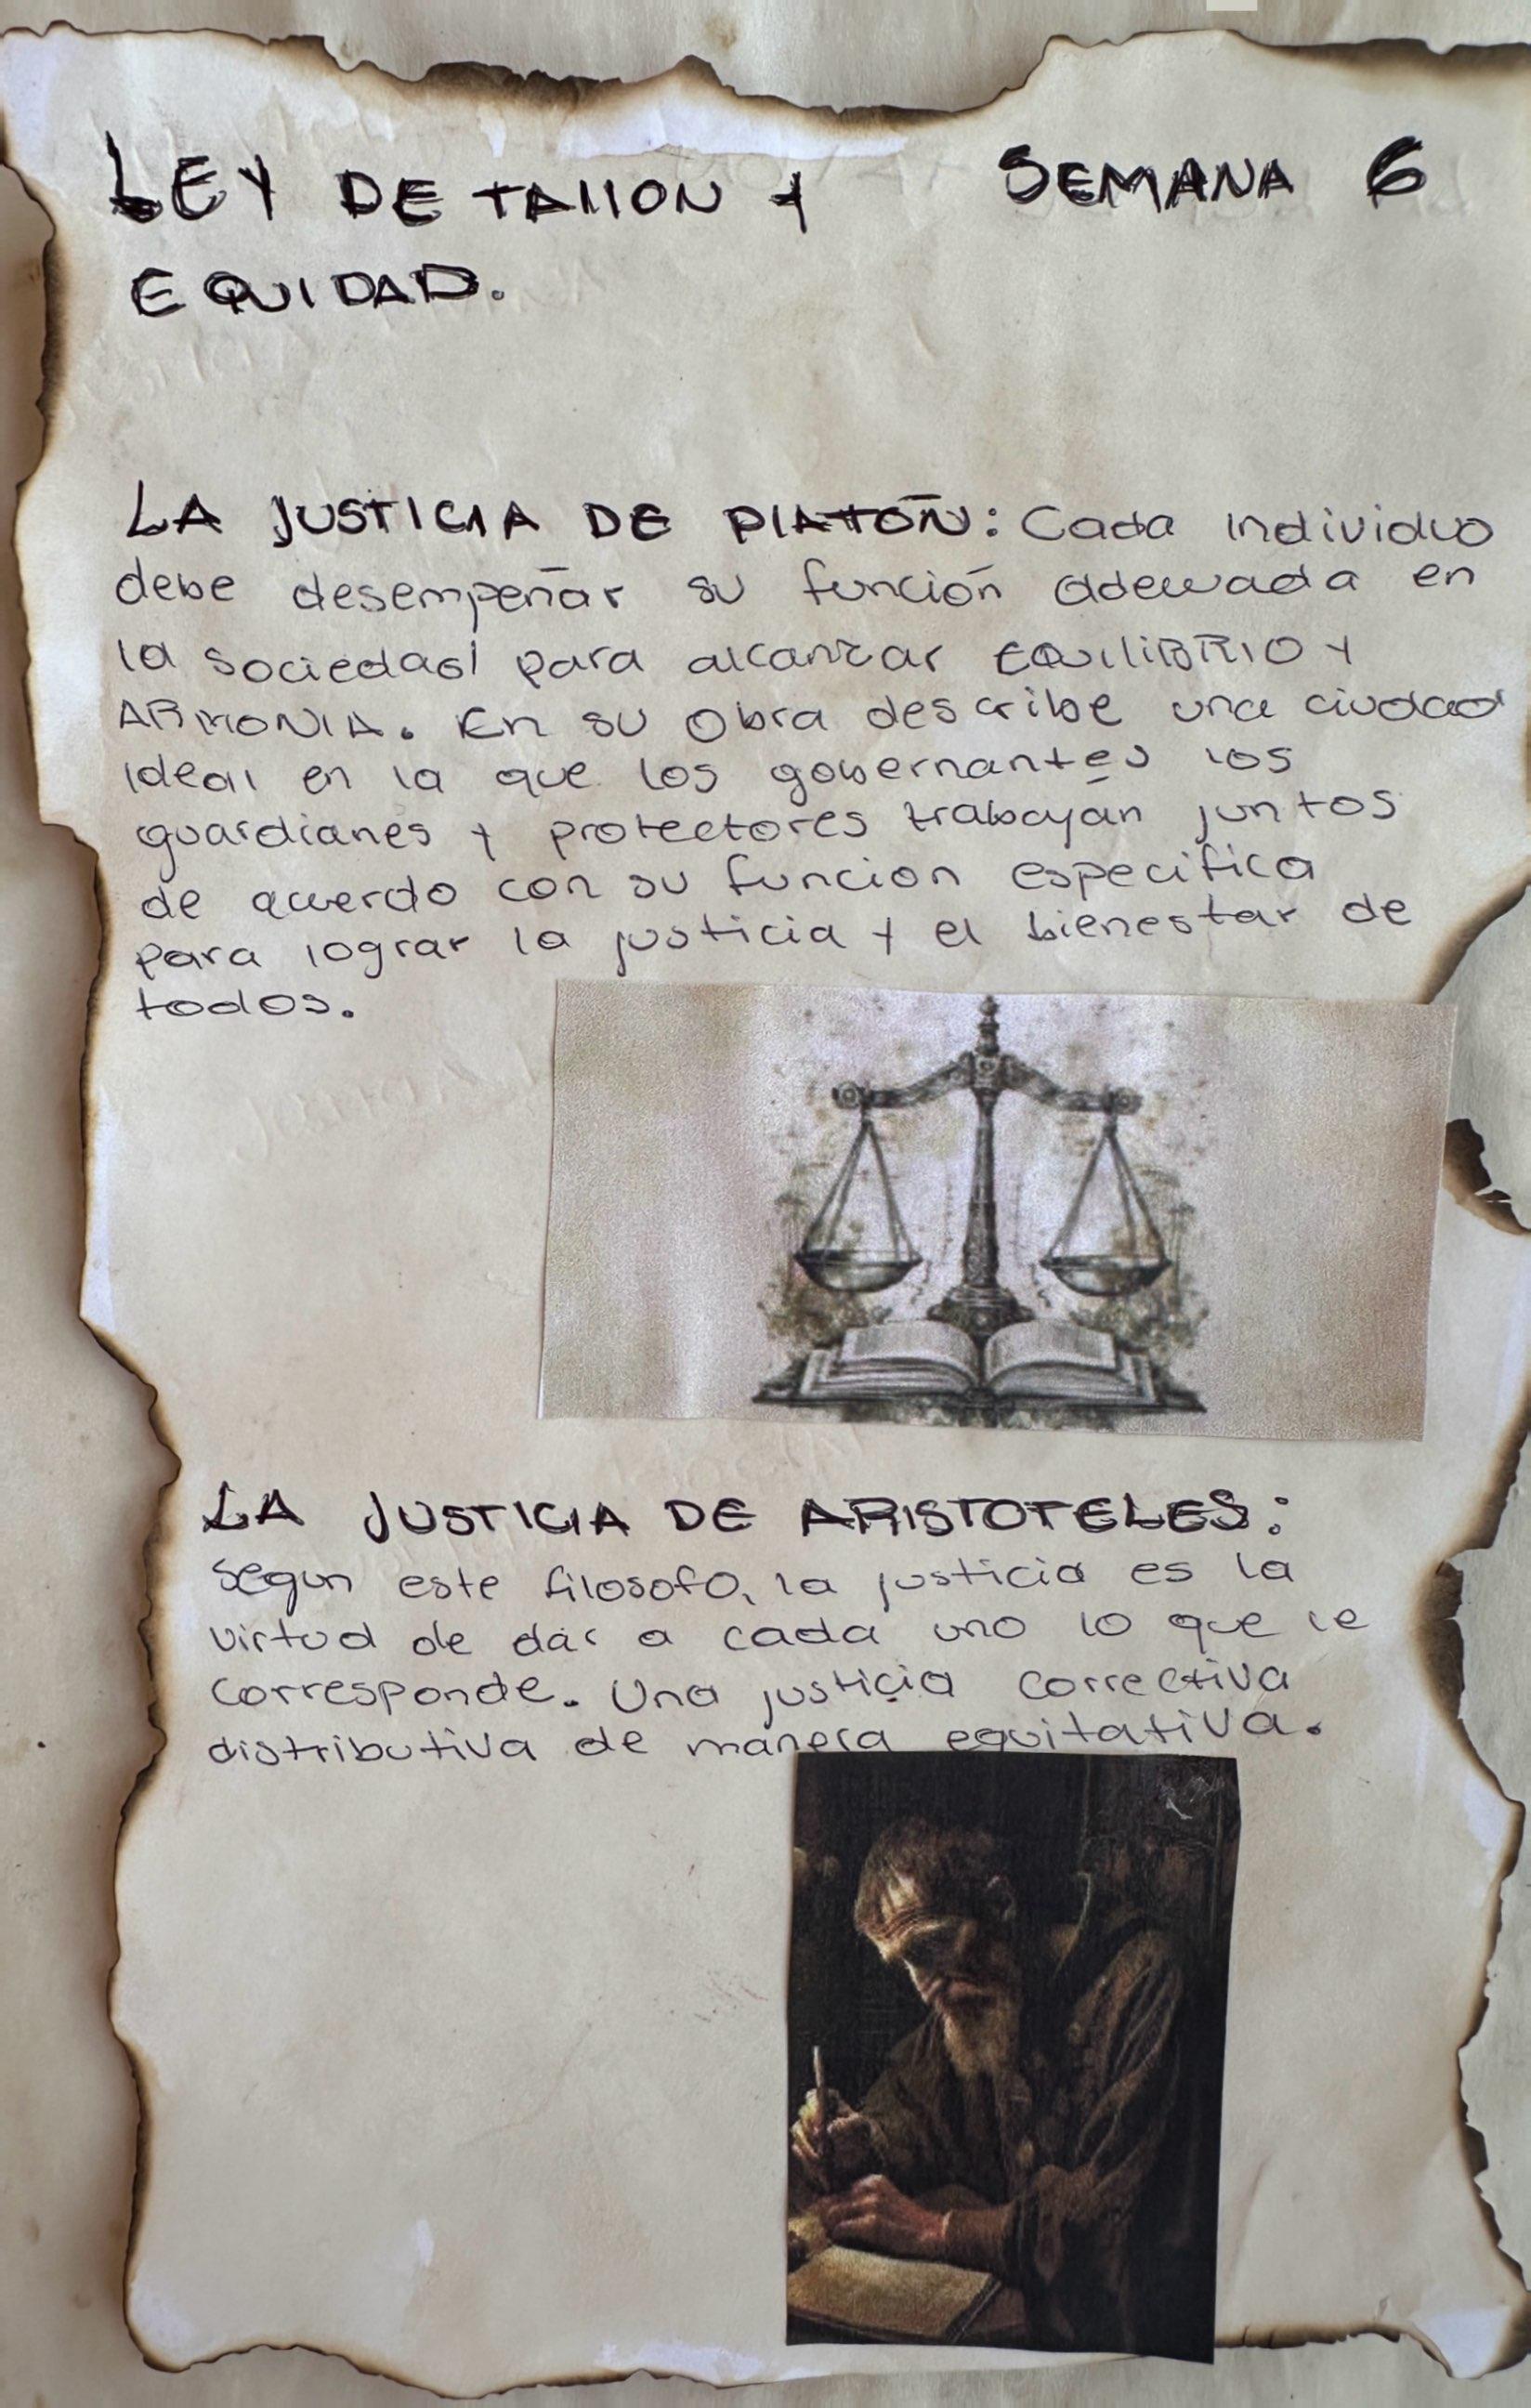 LEY DE TALION Y SEMANA 6
EQUIDAD.
LA JUSTICIA DE PLATÓN: Cada individuo
debe desempeñar su función adecuada en
la sociedad para alcanzar EQUILIBRIO Y
ARMONIA. En su obra describe una ciudad
ideal en la que los gobernantes los
guardianes y protectores trabajan juntos
de acuerdo con su funcion especifica
para lograr la justicia y el bienestar de
todos.
LA JUSTICIA DE ARISTOTELES:
Segun este filosofo, la justicia es la
virtud de dar a cada uno lo que le
corresponde. Una justicia correctiva
distributiva de manera equitativa.